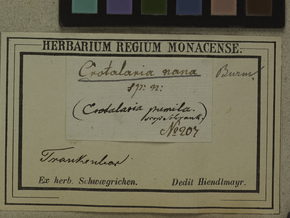 HERBARIUM REGIUM MONACENSE.
Crotalaria nana Burm.
sp. n:
(Crotalaria pumila.
No 207
Trankenbar
Ex herb. Schwægrichen. Dedit Hiendlmayr.